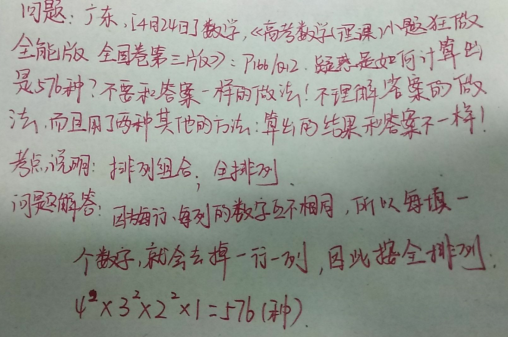 问题: 广东, [4月24日] 数学, 《高考数学(理课)小题狂做
全能版 全国卷第三版》: P166/Q12. 疑惑是如何计算出
是576种? 不要和答案一样的做法! 不理解答案的做
法, 而且用了两种其他的方法, 算出的结果和答案不一样!
考点说明: 排列组合; 全排列.
问题解答: 因为每行、每列的数字互不相同, 所以每填一
个数字, 就会去掉一行一列, 因此按全排列:
4²×3²×2²×1=576(种).